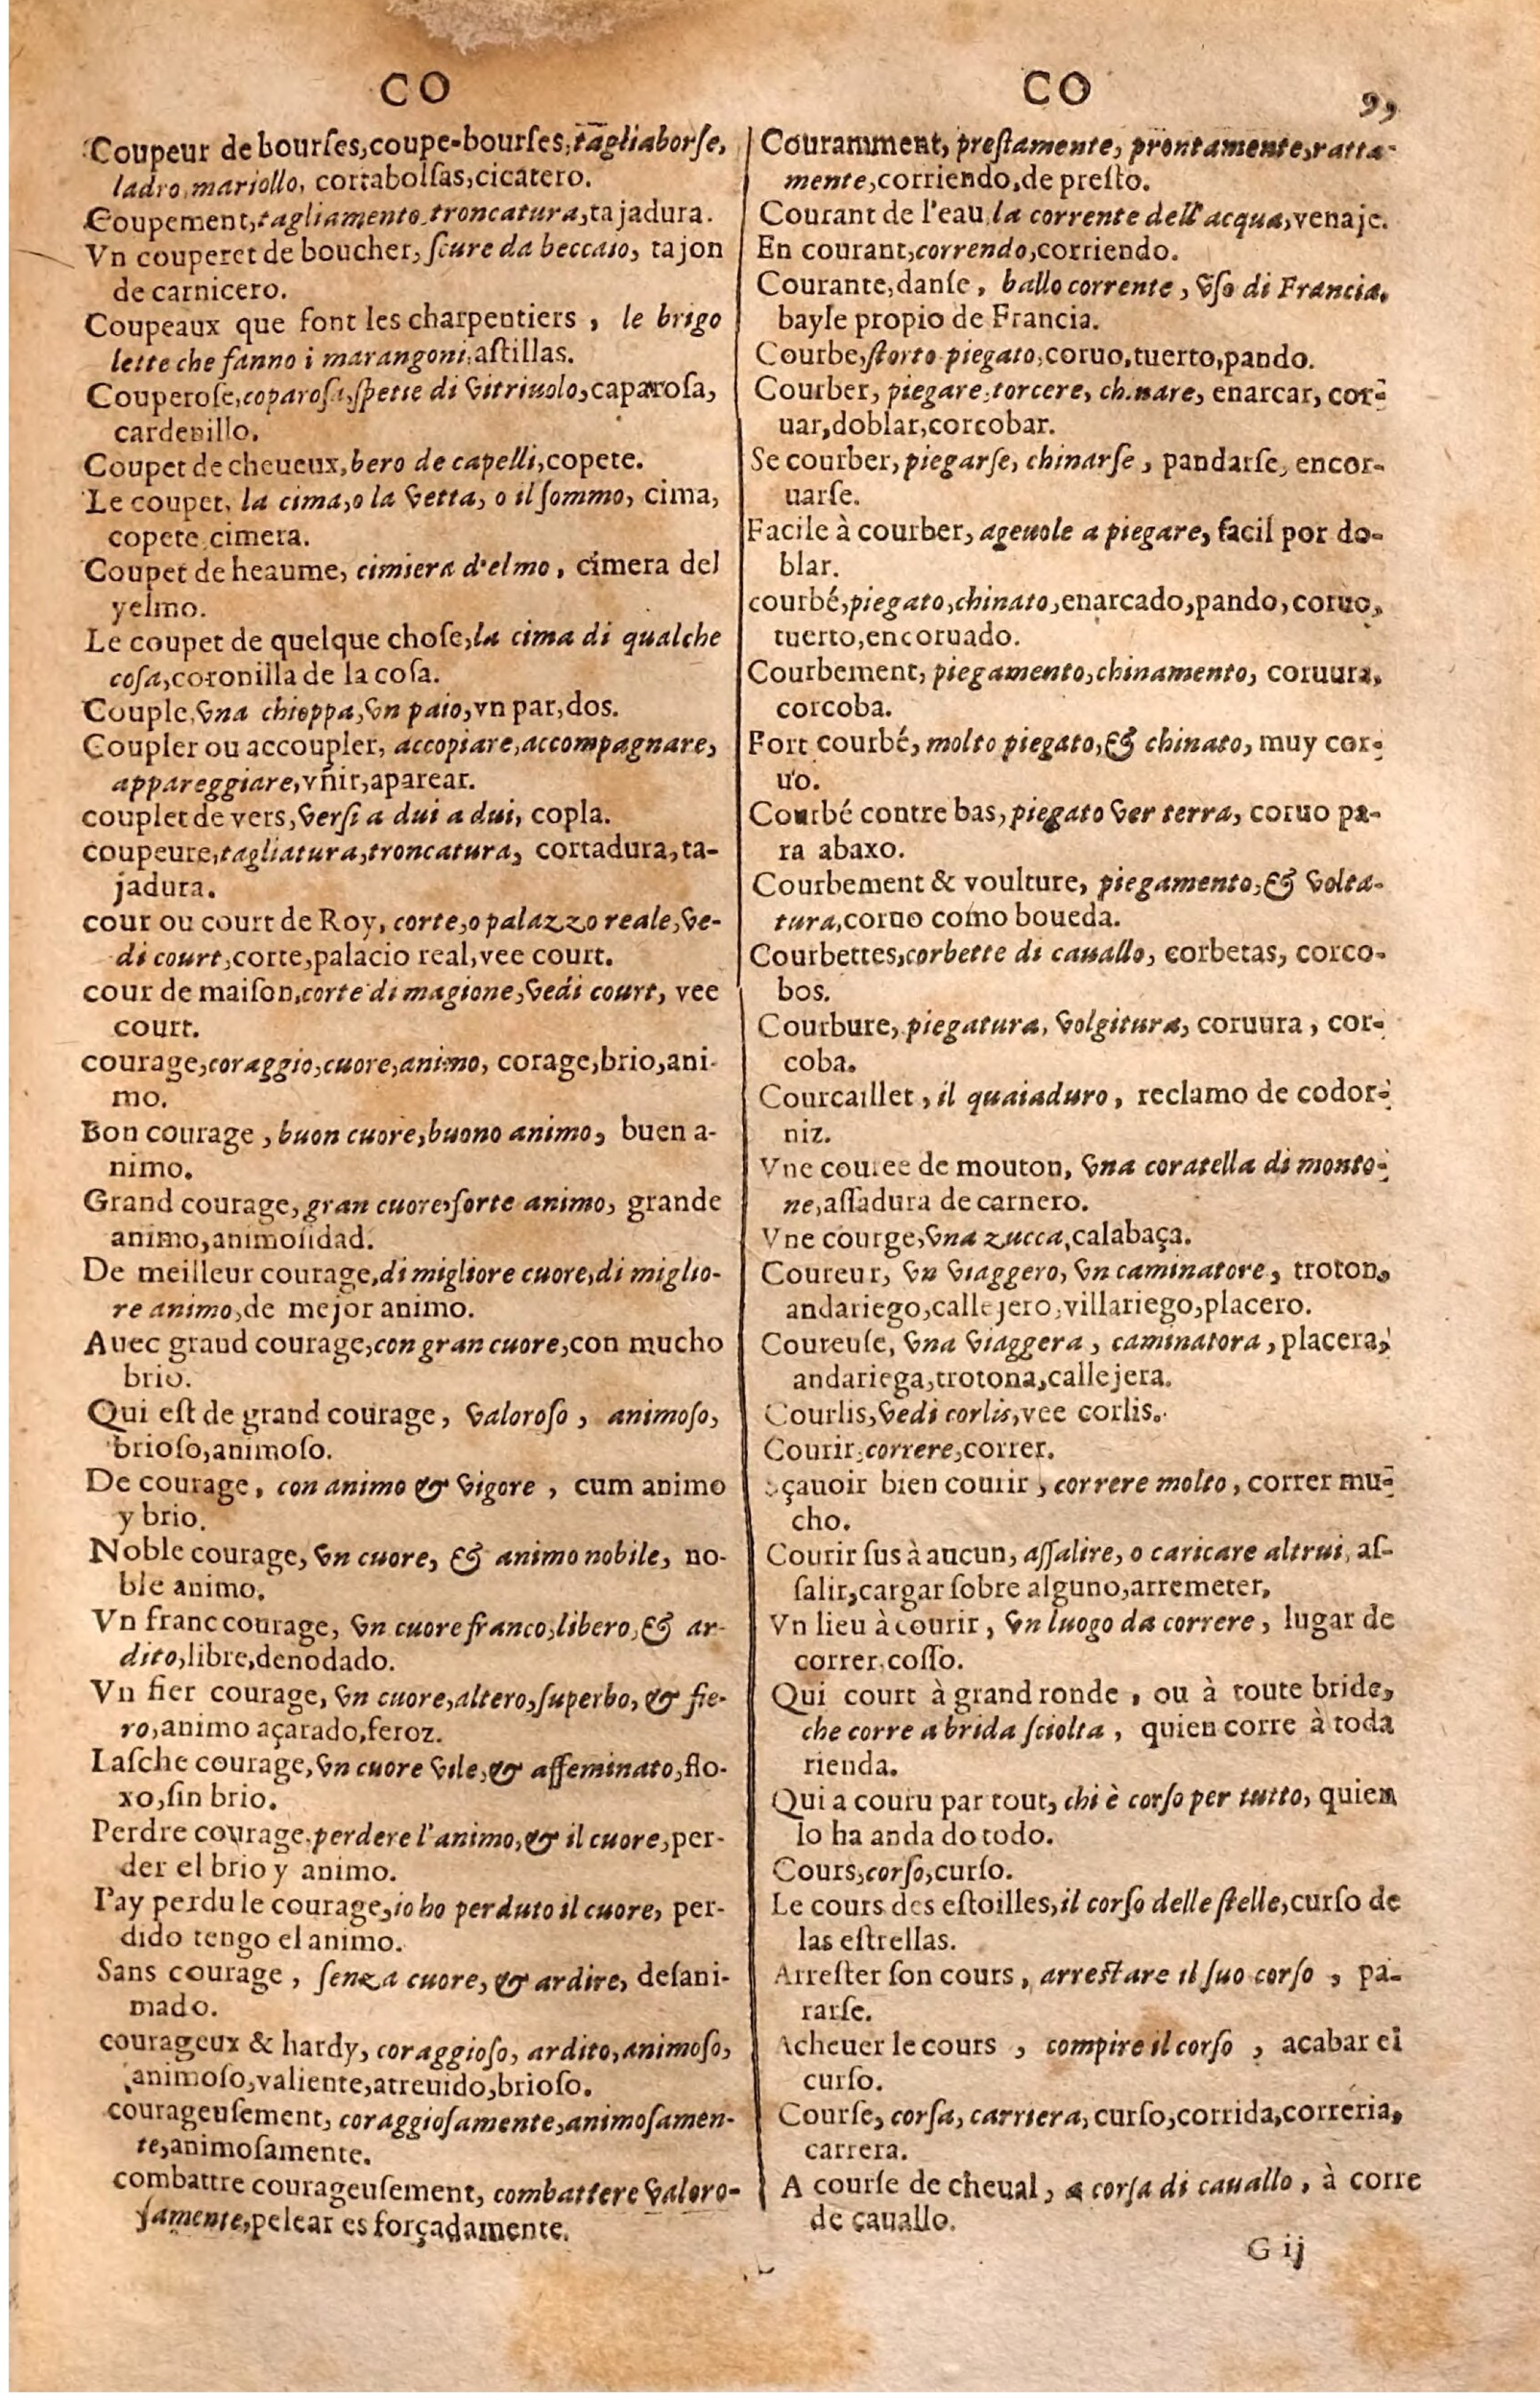 CO
Coupeur de bourſes,coupe-bourſes,tagliaborſe,
ladro,mariollo, cortabolſas,cicatero.
Coupement,tagliamento,troncatura,tajadura.
Vn couperet de boucher, ſcure da beccaio, tajon
de carnicero.
Coupeaux que font les charpentiers, le brigo
lette che fanno i marangoni,aſtillas.
Couperoſe,coparoſa,ſpetie di vitriuolo,caparoſa,
cardenillo.
Coupet de cheueux,bero de capelli,copete.
Le coupet, la cima,o la vetta, o il ſommo, cima,
copete,cimera.
Coupet de heaume, cimiera d'elmo, cimera del
yelmo.
Le coupet de quelque choſe,la cima di qualche
coſa,coronilla de la coſa.
Couple,vna chioppa,vn paio,vn par,dos.
Coupler ou accoupler, accopiare,accompagnare,
appareggiare,vñir,aparear.
couplet de vers,verſi a dui a dui, copla.
coupeure,tagliatura,troncatura, cortadura,ta-
jadura.
cour ou court de Roy, corte,o palazzo reale,ve-
di court,corte,palacio real,vee court.
cour de maiſon,corte di magione,vedi court, vee
court.
courage,coraggio,cuore,animo, corage,brio,ani-
mo.
Bon courage, buon cuore,buono animo, buen a-
nimo.
Grand courage, gran cuore,forte animo, grande
animo,animoſidad.
De meilleur courage,di migliore cuore,di miglio-
re animo,de mejor animo.
Auec graud courage,con gran cuore,con mucho
brio.
Qui eſt de grand courage, valoroſo, animoſo,
brioſo,animoſo.
De courage, con animo & vigore, cum animo
y brio.
Noble courage, vn cuore, & animo nobile, no-
ble animo.
Vn franc courage, vn cuore franco,libero,& ar-
dito,libre,denodado.
Vn fier courage, vn cuore,altero,ſuperbo, & fie-
ro,animo açarado,feroz.
Laſche courage,vn cuore vile,& affeminato,flo-
xo,ſin brio.
Perdre courage,perdere l'animo,& il cuore,per-
der el brio y animo.
I'ay perdu le courage,io ho perduto il cuore, per-
dido tengo el animo.
Sans courage, ſenza cuore, & ardire, deſani-
mado.
courageux & hardy, coraggioſo, ardito,animoſo,
animoſo,valiente,atreuido,brioſo.
courageuſement, coraggioſamente,animoſamen-
te,animoſamente.
combattre courageuſement, combattere valoro-
ſamente,pelear es forçadamente.
CO 99
Couramment, preſtamente, prontamente,ratta-
mente,corriendo,de preſto.
Courant de l'eau,la corrente dell'acqua,venaje.
En courant,correndo,corriendo.
Courante,danſe, ballo corrente, vſo di Francia,
bayle propio de Francia.
Courbe,ſtorto piegato,coruo,tuerto,pando.
Courber, piegare,torcere, chinare, enarcar, cor-
uar,doblar,corcobar.
Se courber,piegarſe, chinarſe, pandarſe, encor-
uarſe.
Facile à courber, ageuole a piegare, facil por do-
blar.
courbé,piegato,chinato,enarcado,pando,coruo,
tuerto,encoruado.
Courbement, piegamento,chinamento, coruura,
corcoba.
Fort courbé, molto piegato,& chinato, muy cor-
uo.
Courbé contre bas,piegato ver terra, coruo pa-
ra abaxo.
Courbement & voulture, piegamento,& volta-
tura,coruo como boueda.
Courbettes,corbette di cauallo, corbetas, corco-
bos.
Courbure, piegatura, volgitura, coruura, cor-
coba.
Courcaillet, il quaiaduro, reclamo de codor-
niz.
Vne couree de mouton, vna coratella di monto-
ne,aſſadura de carnero.
Vne courge,vna zucca,calabaça.
Coureur, vn viaggero, vn caminatore, troton,
andariego,callejero,villariego,placero.
Coureuſe, vna viaggera, caminatora, placera,
andariega,trotona,callejera.
Courlis,vedi corlis,vee corlis.
Courir,correre,correr.
Sçauoir bien courir, correre molto, correr mu-
cho.
Courir ſus à aucun, aſſalire, o caricare altrui, aſ-
ſalir,cargar ſobre alguno,arremeter,
Vn lieu à courir, vn luogo da correre, lugar de
correr,coſſo.
Qui court à grand ronde, ou à toute bride,
che corre a brida ſciolta, quien corre à toda
rienda.
Qui a couru par tout, chi è corſo per tutto, quien
lo ha anda do todo.
Cours,corſo,curſo.
Le cours des eſtoilles,il corſo delle ſtelle,curſo de
las eſtrellas.
Arreſter ſon cours, arreſtare il ſuo corſo, pa-
rarſe.
Acheuer le cours, compire il corſo, acabar el
curſo.
Courſe, corſa, carriera, curſo,corrida,correria,
carrera.
A courſe de cheual, a corſa di cauallo, à corre
de çauallo.
G ij